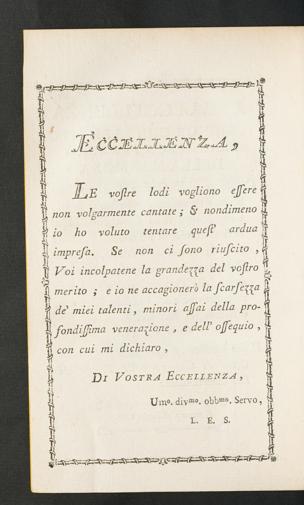 ECCELLENZA,
LE voſtre lodi vogliono eſſere
non volgarmente cantate; & nondimeno
io ho voluto tentare queſt' ardua
impreſa. Se non ci ſono riuſcito,
Voi incolpatene la grandezza del voſtro
merito; e io ne accagionerò la ſcarſezza
de' miei talenti, minori aſſai della pro-
fondiſſima venerazione, e dell' oſſequio,
con cui mi dichiaro,
DI VOSTRA ECCELLENZA,
Umo. divmo. obbmo. Servo,
L. E. S.